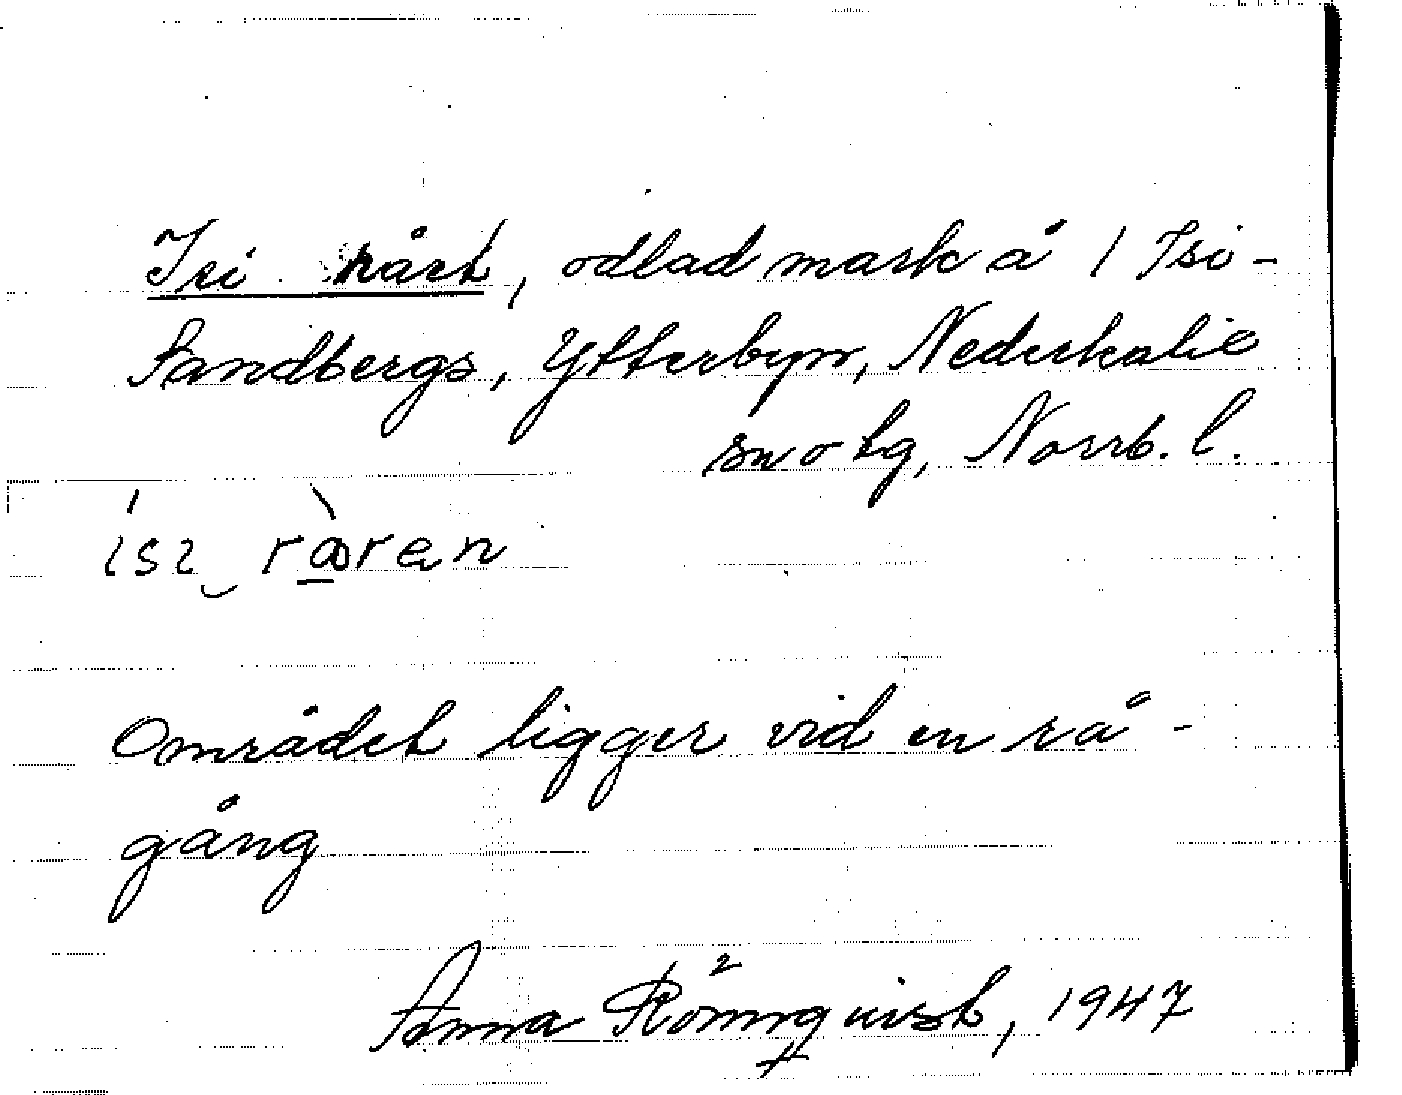 Isi råret, odlad mark å 1 Isi-
Sandbergs, Ytterbyn, Nederkalix
sn o tg, Norrb. l.
ısɩ råren
Området ligger vid en rå-
gång
Anna Rönnqvist, 1947